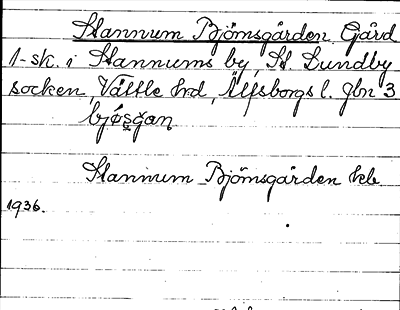 Stannum Björnsgården Gård
1-sk. i Stannums by, St. Lundby
socken, Vättle hrd, Älfsborgs l. Jbn 3
Stannum Björnsgården hcb
1936.